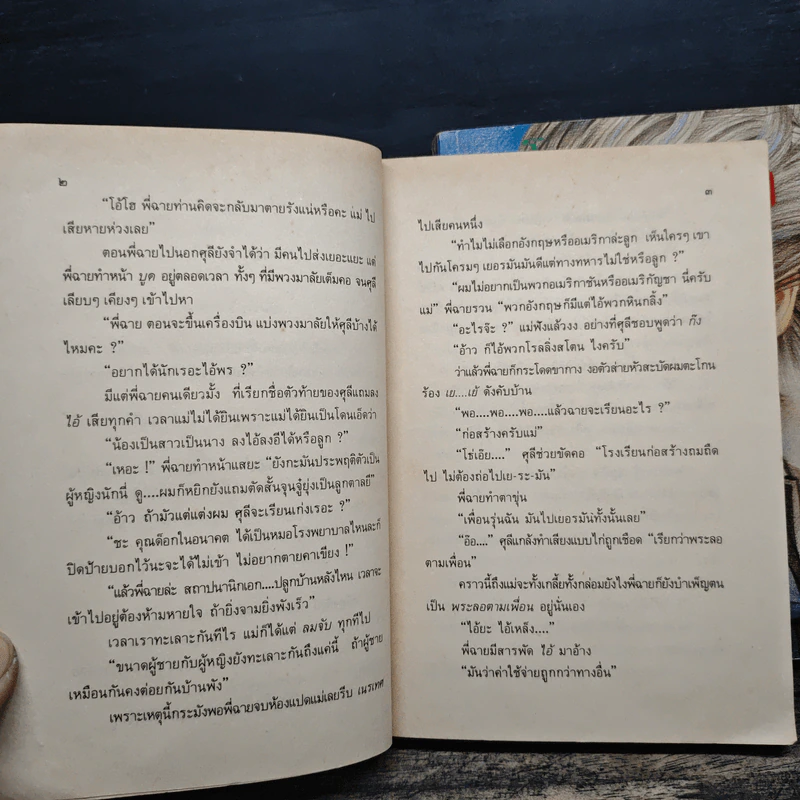 ๒
“โอ้โฮ พี่ฉายท่านคิดจะกลับมาตายรังแน่หรือคะ แม่ ไป
เสียหายห่วงเลย”
ตอนพี่ฉายไปนอกศุลียังจำได้ว่า มีคนไปส่งเยอะแยะ แต่
พี่ฉายทำหน้า บูด อยู่ตลอดเวลา ทั้งๆ ที่มีพวงมาลัยเต็มคอ จนศุลี
เลียบๆ เคียงๆ เข้าไปหา
“พี่ฉาย ตอนจะขึ้นเครื่องบิน แบ่งพวงมาลัยให้ศุลีบ้างได้
ไหมคะ ?”
“อยากได้นักเรอะไอ้พร ?”
มีแต่พี่ฉายคนเดียวมั้ง ที่เรียกชื่อตัวท้ายของศุลีแถมลง
ไอ้ เสียทุกคำ เวลาแม่ไม่ได้ยินเพราะแม่ได้ยินเป็นโดนเอ็ดว่า
“น้องเป็นสาวเป็นนาง ลงไอ้ลงอีได้หรือลูก ?”
“เหอะ !” พี่ฉายทำหน้าแสยะ “ยังกะมันประพฤติตัวเป็น
ผู้หญิงนักนี่ ดู....ผมก็หยิกยังแถมตัดสั้นจุนจู๋ยุ่งเป็นลูกตาลยี”
“อ้าว ถ้ามัวแต่แต่งผม ศุลีจะเรียนเก่งเรอะ ?”
“ชะ คุณด็อกในอนาคต ได้เป็นหมอโรงพยาบาลไหนละก็
ปิดป้ายบอกไว้นะจะได้ไม่เข้า ไม่อยากตายคาเขียง !”
“แล้วพี่ฉายล่ะ สถาปนานิกเอก....ปลูกบ้านหลังไหน เวลาจะ
เข้าไปอยู่ต้องห้ามหายใจ ถ้ายิ่งจามยิ่งพังเร็ว”
เวลาเราทะเลาะกันทีไร แม่ก็ได้แต่ ลมจับ ทุกทีไป
“ขนาดผู้ชายกับผู้หญิงยังทะเลาะกันถึงแค่นี้ ถ้าผู้ชาย
เหมือนกันคงต่อยกันบ้านพัง”
เพราะเหตุนี้กระมังพอพี่ฉายจบห้องแปดแม่เลยรีบ เนรเทศ
๓
ไปเสียคนหนึ่ง
“ทำไมไม่เลือกอังกฤษหรืออเมริกาล่ะลูก เห็นใครๆ เขา
ไปกันโครมๆ เยอรมันมันดีแต่ทางทหารไม่ใช่หรือลูก ?”
“ผมไม่อยากเป็นพวกอเมริกาชันหรืออเมริกัญชา นี่ครับ
แม่” พี่ฉายรวน “พวกอังกฤษก็มีแต่ไอ้พวกหินกลิ้ง”
“อะไรจ๊ะ ?” แม่ฟังแล้วงง อย่างที่ศุลีชอบพูดว่า กัง
“อ้าว ก็ไอ้พวกโรลลิ่งสโตน ไงครับ”
ว่าแล้วพี่ฉายก็กระโดดขากาง งอตัวส่ายหัวสะบัดผมตะโกน
ร้อง เย....เย้ ดังคับบ้าน
“พอ....พอ....พอ....แล้วฉายจะเรียนอะไร ?”
“ก่อสร้างครับแม่”
“โช่เอ๊ย....” ศุลีช่วยขัดคอ “โรงเรียนก่อสร้างถมถืด
ไป ไม่ต้องถ่อไปเย-ระ-มัน”
พี่ฉายทำตาขุ่น
“เพื่อนรุ่นฉัน มันไปเยอรมันทั้งนั้นเลย”
“อ๊อ....” ศุลีแกล้งทำเสียงแบบไก่ถูกเชือด “เรียกว่าพระลอ
ตามเพื่อน”
คราวนี้ถึงแม่จะทั้งเกลี้ยทั้งกล่อมยังไงพี่ฉายก็ยังบำเพ็ญตน
เป็น พระลอตามเพื่อน อยู่นั่นเอง
“ไอ้ยะ ไอ้เหล็ง....”
พี่ฉายมีสารพัด ไอ้ มาอ้าง
“มันว่าค่าใช้จ่ายถูกกว่าทางอื่น”